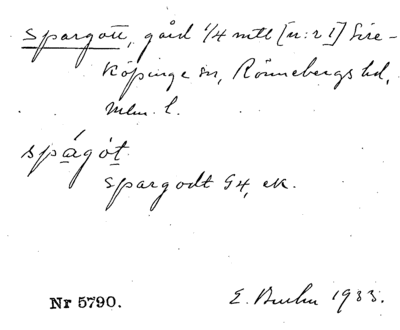 Spargott, gård 1/4 mtl [n:r 1] Sire-
köpinge sn, Rönnebergs hd,
Mlm. l.
spágót
Spargodt G4, ek.
Nr 5790. E. 1933.